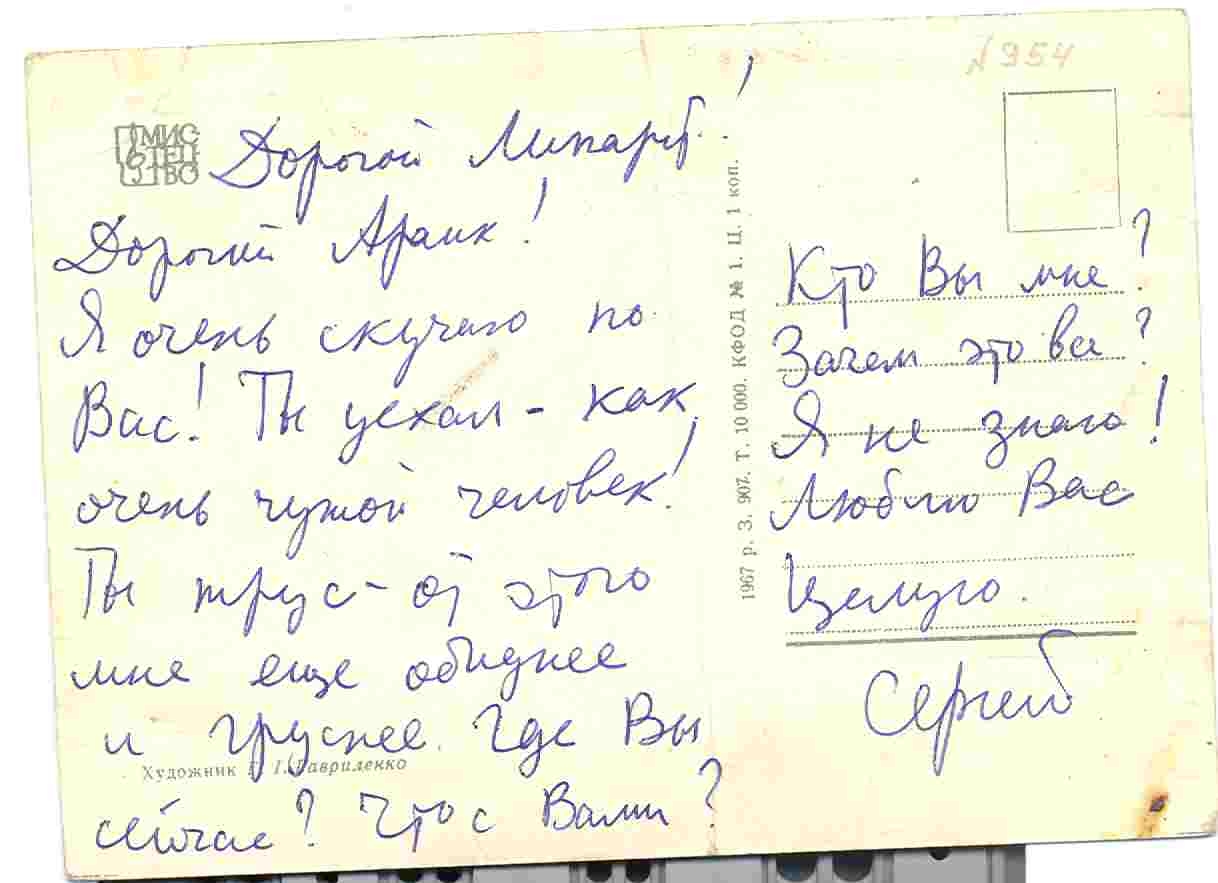 № 954
МИС
ТЕЦ
ТВО
Дорогой Липарит!
Дорогой Араик!
Я очень скучаю по
Вас! Ты уехал - как
очень чужой человек!
Ты трус - от этого
мне еще обиднее
и грустнее. Где Вы
Художник Г. І. Гавриленко
сейчас? Что с Вами?
1967 р. З. 907. Т. 10 000. КФОД № 1. Ц. 1 коп.
Кто Вы мне?
Зачем это все?
Я не знаю!
Люблю Вас
Целую.
Сергей